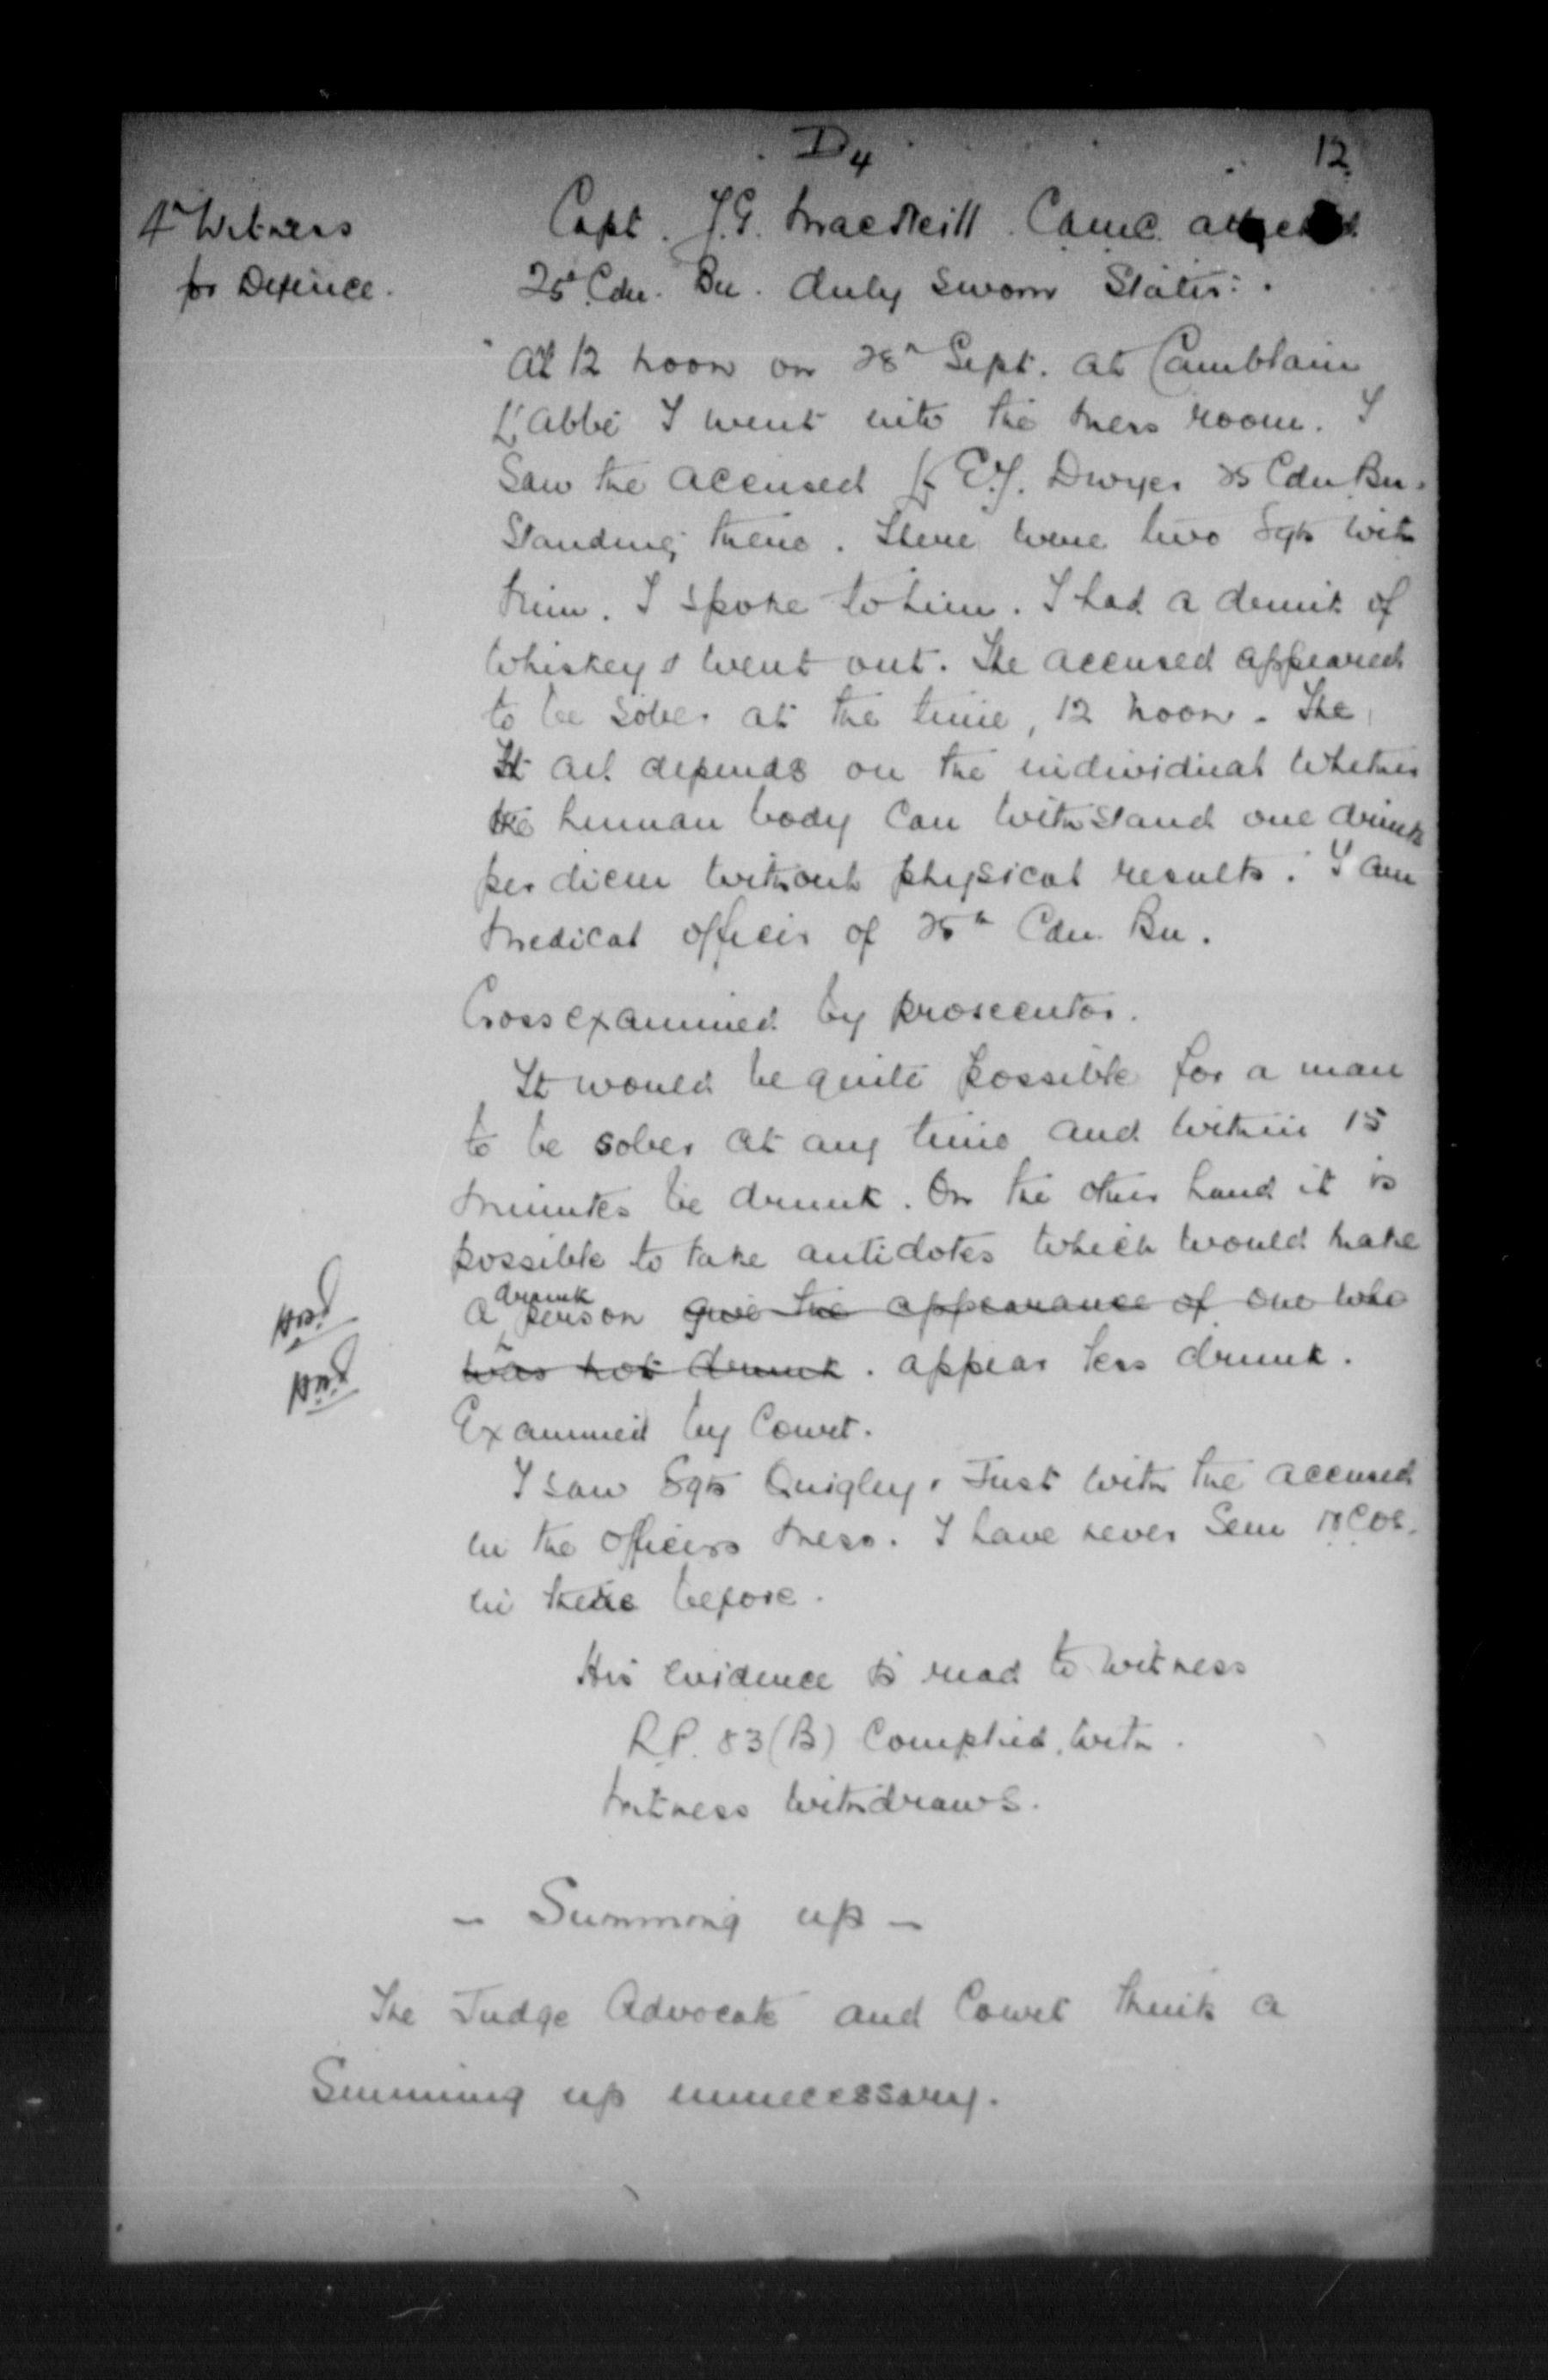 D4
12
4th Witness
for Defence.
Capt. J.G. MacNeill. C.A.M.C. attached
25th Cdn. Bn. duly sworn States:.
"At 12 noon on 28th Sept. at Camblain
L'abbé I went into the mess room. I
saw the accused Lt E.J. Dwyer 25 Cdn Bn.
Standing there. There were two Sgts with
him. I spoke to him. I had a drink of
Whiskey & went out. The accused appeared
to be sober at the time, 12 noon. The
It all depends on the individual whether
the human body can withstand one drink
per diem without physical results. I am
Medical officer of 25th Cdn. Bn.
Cross examined by prosecutor.
It would be quite possible for a man
to be sober at any time and within 15
minutes be drunk. On the other hand it is
possible to take antidotes which would make
a drunk person give the appearance of one who
was not drunk. appear less drunk.
Examined by Court.
I saw Sgts Quigley & Just with the accused
in the officers mess. I have never seen N.C.Os.
in there before.
His evidence is read to witness
R.P. 83(B) Complied with.
Witness withdraws.
- Summing up -
The Judge Advocate and Court think a
Summing up unnecessary.